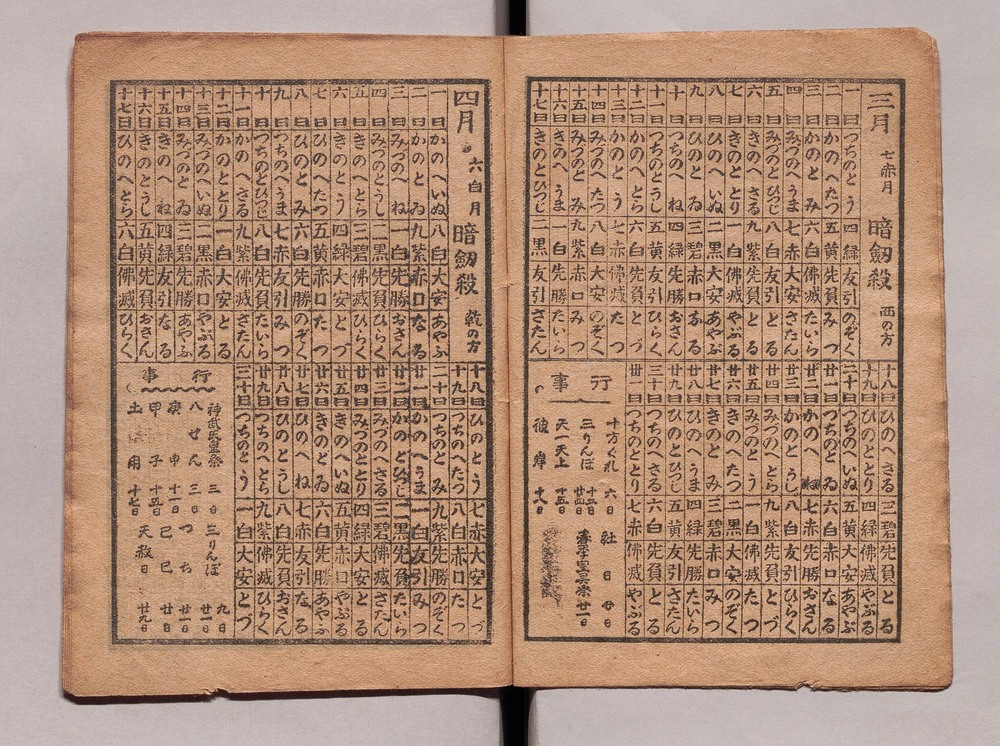 三月 七赤月 暗劔殺 西の方
一日 つちのとう 四緑 友引 のぞく
二日 かのへたつ 五黄 先負 みつ
三日 かのとみ 六白 佛滅 たいら
四日 みづのへうま 七赤 大安 さたん
五日 みづのとひつじ 八白 友引 とる
六日 きのへさる 九紫 先負 とる
七日 きのととり 一白 佛滅 やぶる
八日 ひのへいぬ 二黒 大安 あやぶ
九日 ひのとゐ 三碧 赤口 なる
十日 つちのへね 四緑 先勝 おさん
十一日 つちのとうし 五黄 友引 ひらく
十二日 かのへとら 六白 先負 とづ
十三日 かのとう 七赤 佛滅 たつ
十四日 みづのへたつ 八白 大安 のぞく
十五日 みづのとみ 九紫 赤口 みつ
十六日 きのへうま 一白 先勝 たいら
十七日 きのとひつじ 二黒 友引 さたん
十八日 ひのへさる 三碧 先負 とる
十九日 ひのととり 四緑 佛滅 やぶる
二十日 つちのへいぬ 五黄 大安 あやぶ
廿一日 つちのとゐ 六白 赤口 なる
廿二日 かのへね 七赤 先勝 おさん
廿三日 かのとうし 八白 友引 ひらく
廿四日 みづのへとら 九紫 先負 とづ
廿五日 みづのとう 一白 佛滅 たつ
廿六日 きのへたつ 二黒 大安 のぞく
廿七日 きのとみ 三碧 赤口 みつ
廿八日 ひのへうま 四緑 先勝 たいら
廿九日 ひのとひつじ 五黄 友引 さたん
三十日 つちのへさる 六白 先負 とる
廿一日 つちのととり 七赤 佛滅 やぶる
行事
十方ぐれ 六日 社日 廿日
三りんぼ 十二日 廿四日 春季皇靈祭 廿一日
天一天上 十五日
彼岸 十八日
四月 六白月 暗劔殺 乾の方
一日 かのへいぬ 八白 大安 あやふ
二日 かのとゐ 九紫 赤口 なる
三日 みづのへね 一白 先勝 おさん
四日 みづのとうし 二黒 先負 ひらく
五日 きのへとら 三碧 佛滅 ひらく
六日 きのとう 四緑 大安 とづ
七日 ひのへたつ 五黄 赤口 たつ
八日 ひのとみ 六白 先勝 のぞく
九日 つちのへうま 七赤 友引 みつ
十日 つちのとひつじ 八白 先負 たいら
十一日 かのへさる 九紫 佛滅 さたん
十二日 かのととり 一白 大安 とる
十三日 みづのへいぬ 二黒 赤口 やぶる
十四日 みづのとゐ 三碧 先勝 あやふ
十五日 きのへね 四緑 友引 なる
十六日 きのとうし 五黄 先負 おさん
十七日 ひのへとら 六白 佛滅 ひらく
十八日 ひのとう 七赤 大安 とづ
十九日 つちのへたつ 八白 赤口 たつ
二十日 つちのとみ 九紫 先勝 のぞく
廿一日 かのへうま 一白 友引 みつ
廿二日 かのとひつじ 二黒 先負 たいら
廿三日 みづのへさる 三碧 佛滅 さたん
廿四日 みづのととり 四緑 大安 とる
廿五日 きのへいぬ 五黄 赤口 やぶる
廿六日 きのとゐ 六白 先勝 あやふ
廿七日 ひのへね 七赤 友引 なる
廿八日 ひのとうし 八白 先負 おさん
廿九日 つちのへとら 九紫 佛滅 ひらく
三十日 つちのとう 一白 大安 とづ
行事
神武天皇祭 三日 三りんぼ 九日 廿一日
八せん 三日
庚申 十一日 つち 廿一日
甲子 十五日 己巳 廿日
土用 十七日 天赦日 廿九日